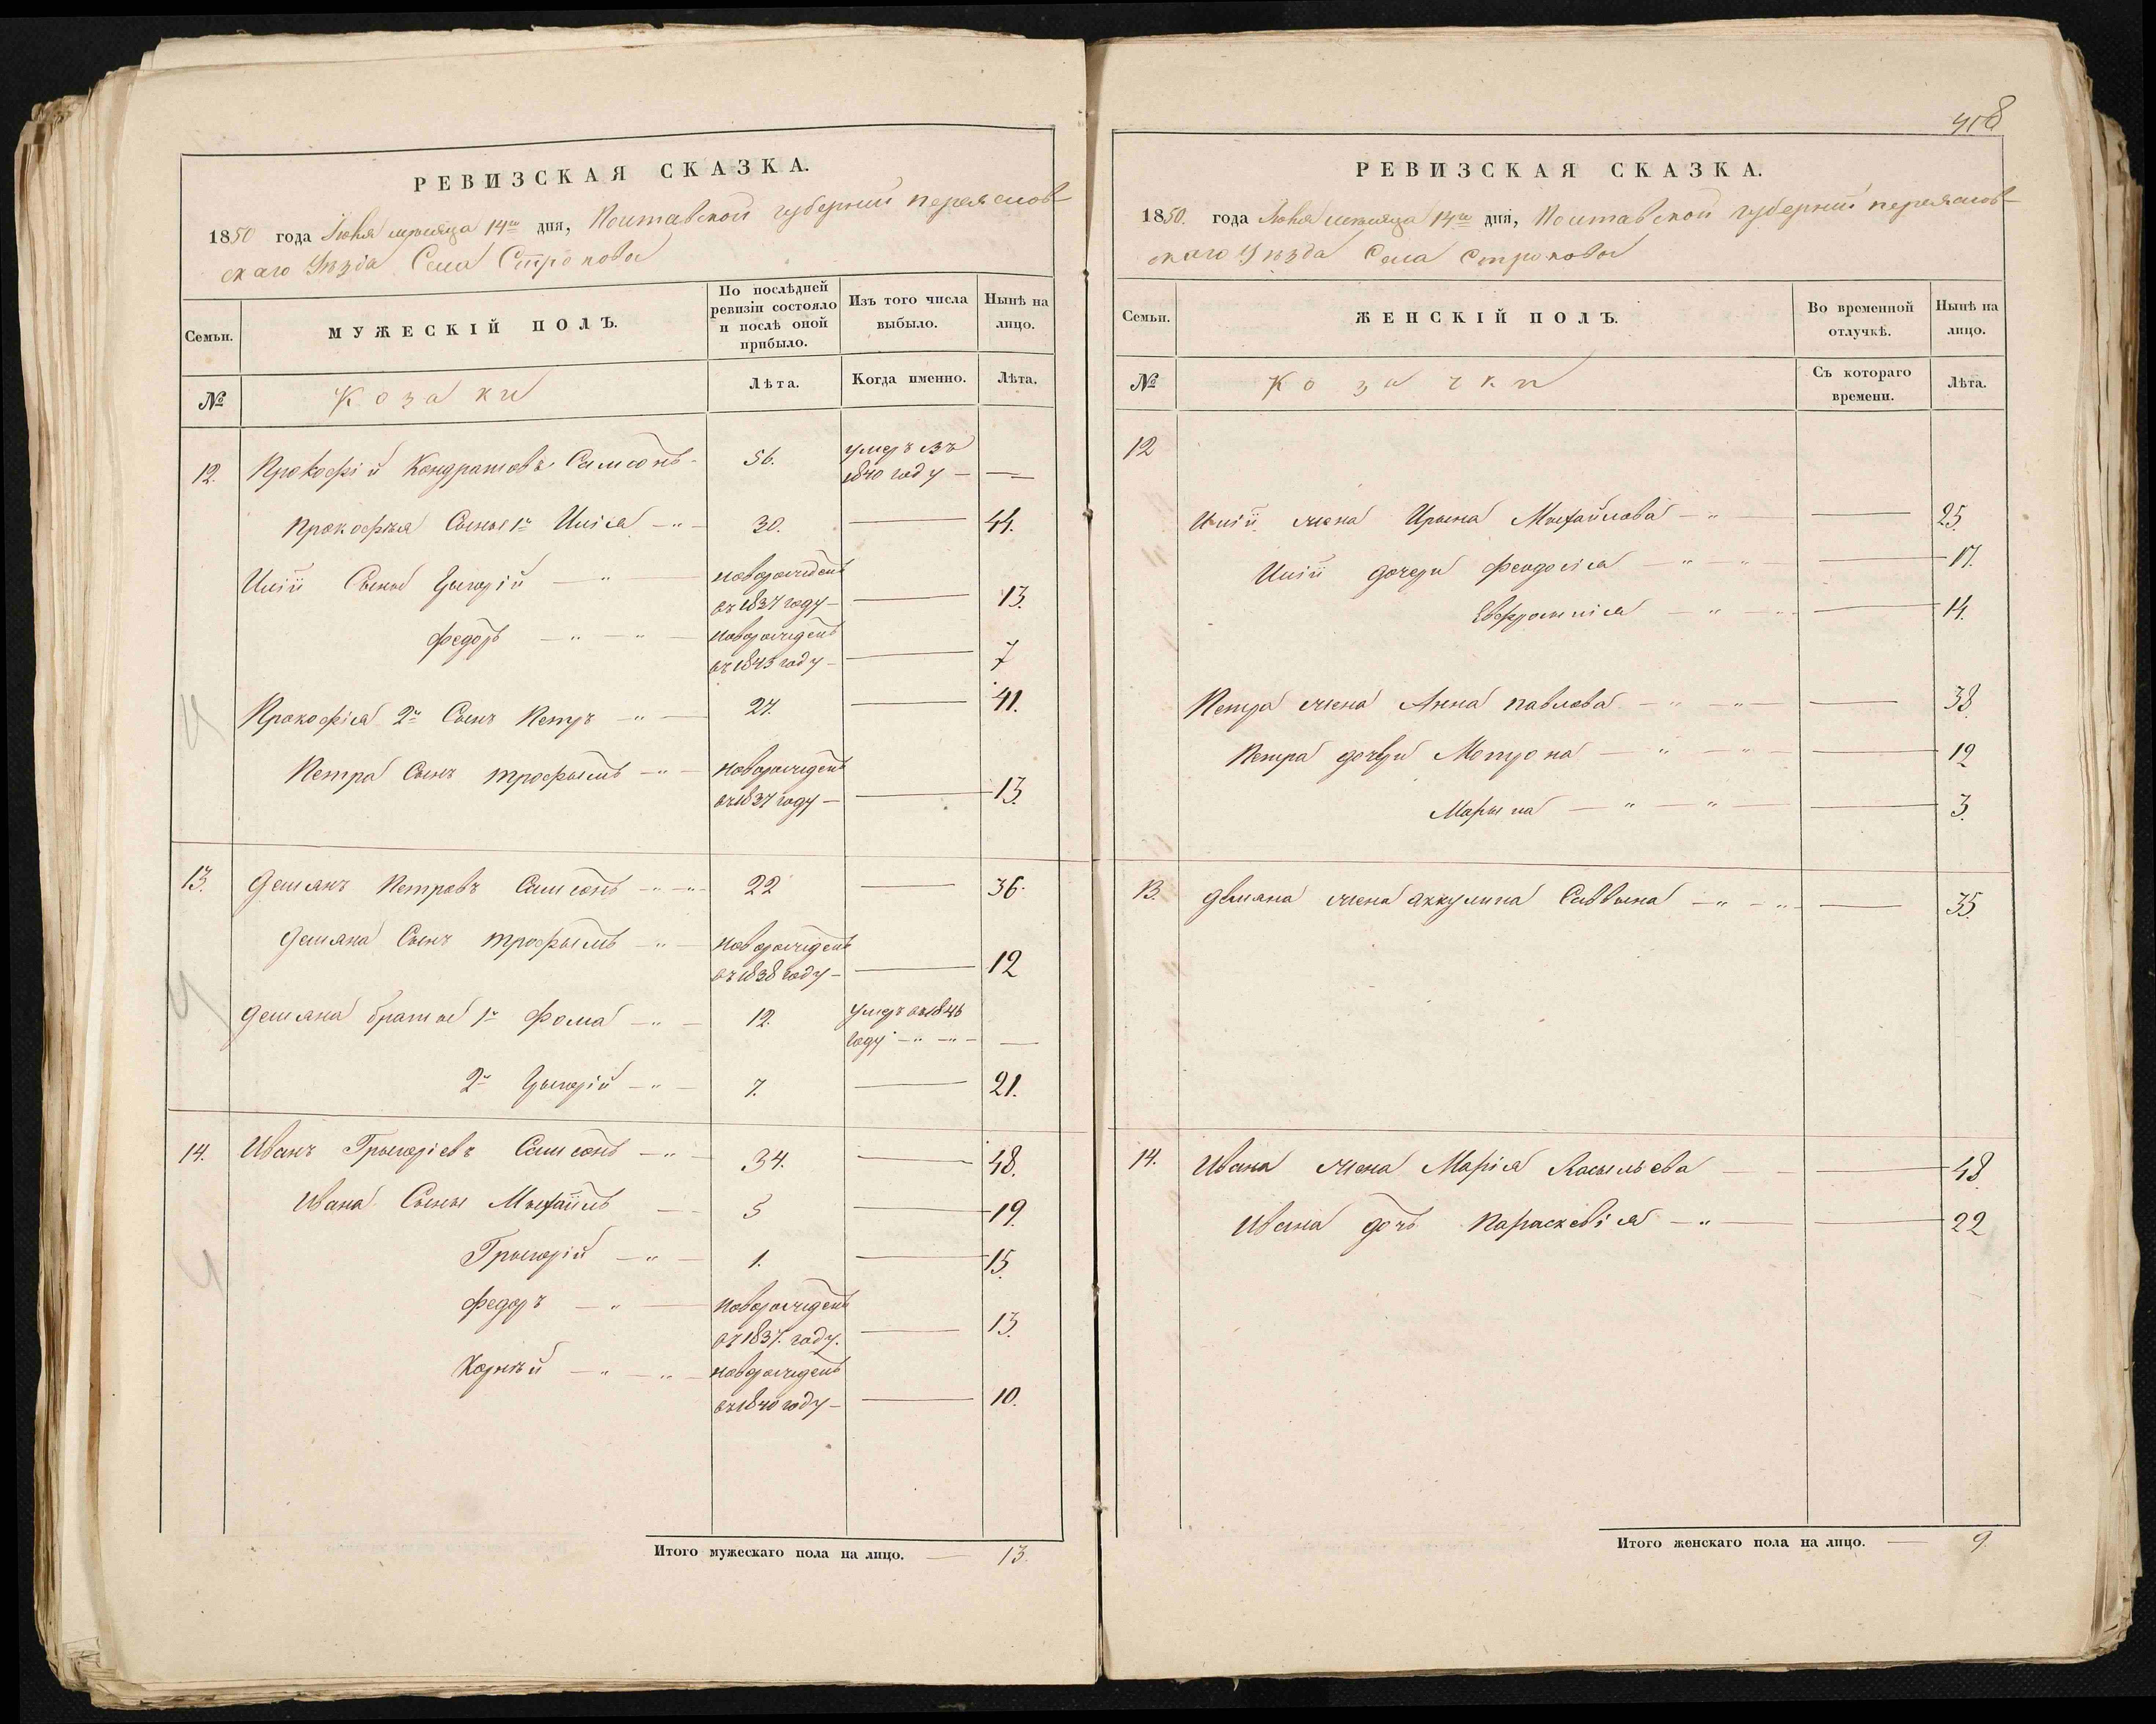 РЕВИЗСКАЯ СКАЗКА.
1850 года Июня мѣсяца 14го дня, Полтавской губернии переяслов-
скаго Уѣзда Села Строковы
Семьи.
МУЖЕСКІЙ ПОЛЪ.
По послѣдней ревизіи состояло и послѣ оной прибыло.
Изъ того числа выбыло.
Нынѣ на лицо.
№
Козаки
Лѣта.
Когда именно.
Лѣта.
12. Прокофій Кондратовъ Самсонъ 56. умеръ въ
1840 году —
Прокофія Сыны 1й Илія 30. — 44.
Иліи Сыны Григорій новорожденъ
въ 1837 году — 13.
Федоръ новорожденъ
въ 1843 году — 7
Прокофія 2й Сынъ Петръ 27. — 41.
Петра Сынъ трофымъ новорожденъ
въ 1837 году — 13.
13. Демянъ Петровъ Самсонъ 22 — 36.
Демяна Сынъ трофымъ новорожденъ
въ 1838 году — 12
Демяна братья 1й Фома 12. умеръ въ 1846
году —
2й Григорій 7. — 21.
14. Иванъ Григоріевъ Самсонъ 34. — 48.
Ивана Сыны Михаилъ 5 — 19.
Григорій 1. — 15.
Федоръ новорожденъ
въ 1837. году. — 13.
Корнѣй новорожденъ
въ 1840 году — 10.
Итого мужескаго пола на лицо. — 13.
418
РЕВИЗСКАЯ СКАЗКА.
1850. года Июня мѣсяца 14го дня, Полтавской губерний переяслов-
скаго Уѣзда Села Строковы
Семьи.
ЖЕНСКІЙ ПОЛЪ.
Во временной отлучкѣ.
Нынѣ на лицо.
№
Козачки
Съ котораго времени.
Лѣта.
12
Иліи жена Ирына Михайлова — 25.
Иліи дочери Феодосія — 17.
Евфросинія — 14.
Петра жена Анна павлова — 38.
Петра дочери Мотрона — 12
Марына — 3.
13. Демяна жена аккулина Саввына — 35.
14. Ивана жена Марія Васильева — 48.
Ивана дочь Параскевія — 22
Итого женскаго пола на лицо. — 9